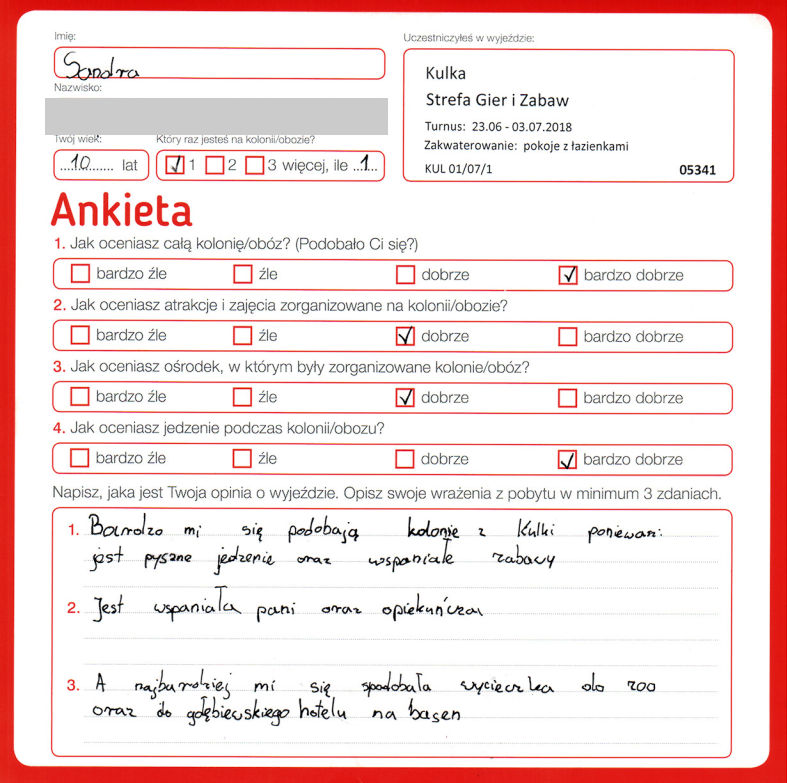 Imię:
Uczestniczyłeś w wyjeździe:
Sandra
Kulka
Nazwisko:
Strefa Gier i Zabaw
Turnus: 23.06 - 03.07.2018
Twój wiek:
Który raz jesteś na kolonii/obozie?
Zakwaterowanie: pokoje z łazienkami
....10....... lat
1 2 3 więcej, ile ..1...
KUL 01/07/1
05341
Ankieta
1. Jak oceniasz całą kolonię/obóz? (Podobało Ci się?)
bardzo źle źle dobrze bardzo dobrze
2. Jak oceniasz atrakcje i zajęcia zorganizowane na kolonii/obozie?
bardzo źle źle dobrze bardzo dobrze
3. Jak oceniasz ośrodek, w którym były zorganizowane kolonie/obóz?
bardzo źle źle dobrze bardzo dobrze
4. Jak oceniasz jedzenie podczas kolonii/obozu?
bardzo źle źle dobrze bardzo dobrze
Napisz, jaka jest Twoja opinia o wyjeździe. Opisz swoje wrażenia z pobytu w minimum 3 zdaniach.
1. Bardzo mi się podobają kolonie z Kulki poniewarz
jest pyszne jedzenie oraz wspaniałe zabawy
2. Jest wspaniała pani oraz opiekuńcza
3. A najbardziej mi się spodobała wycieczka do zoo
oraz do gołębiewskiego hotelu na basen